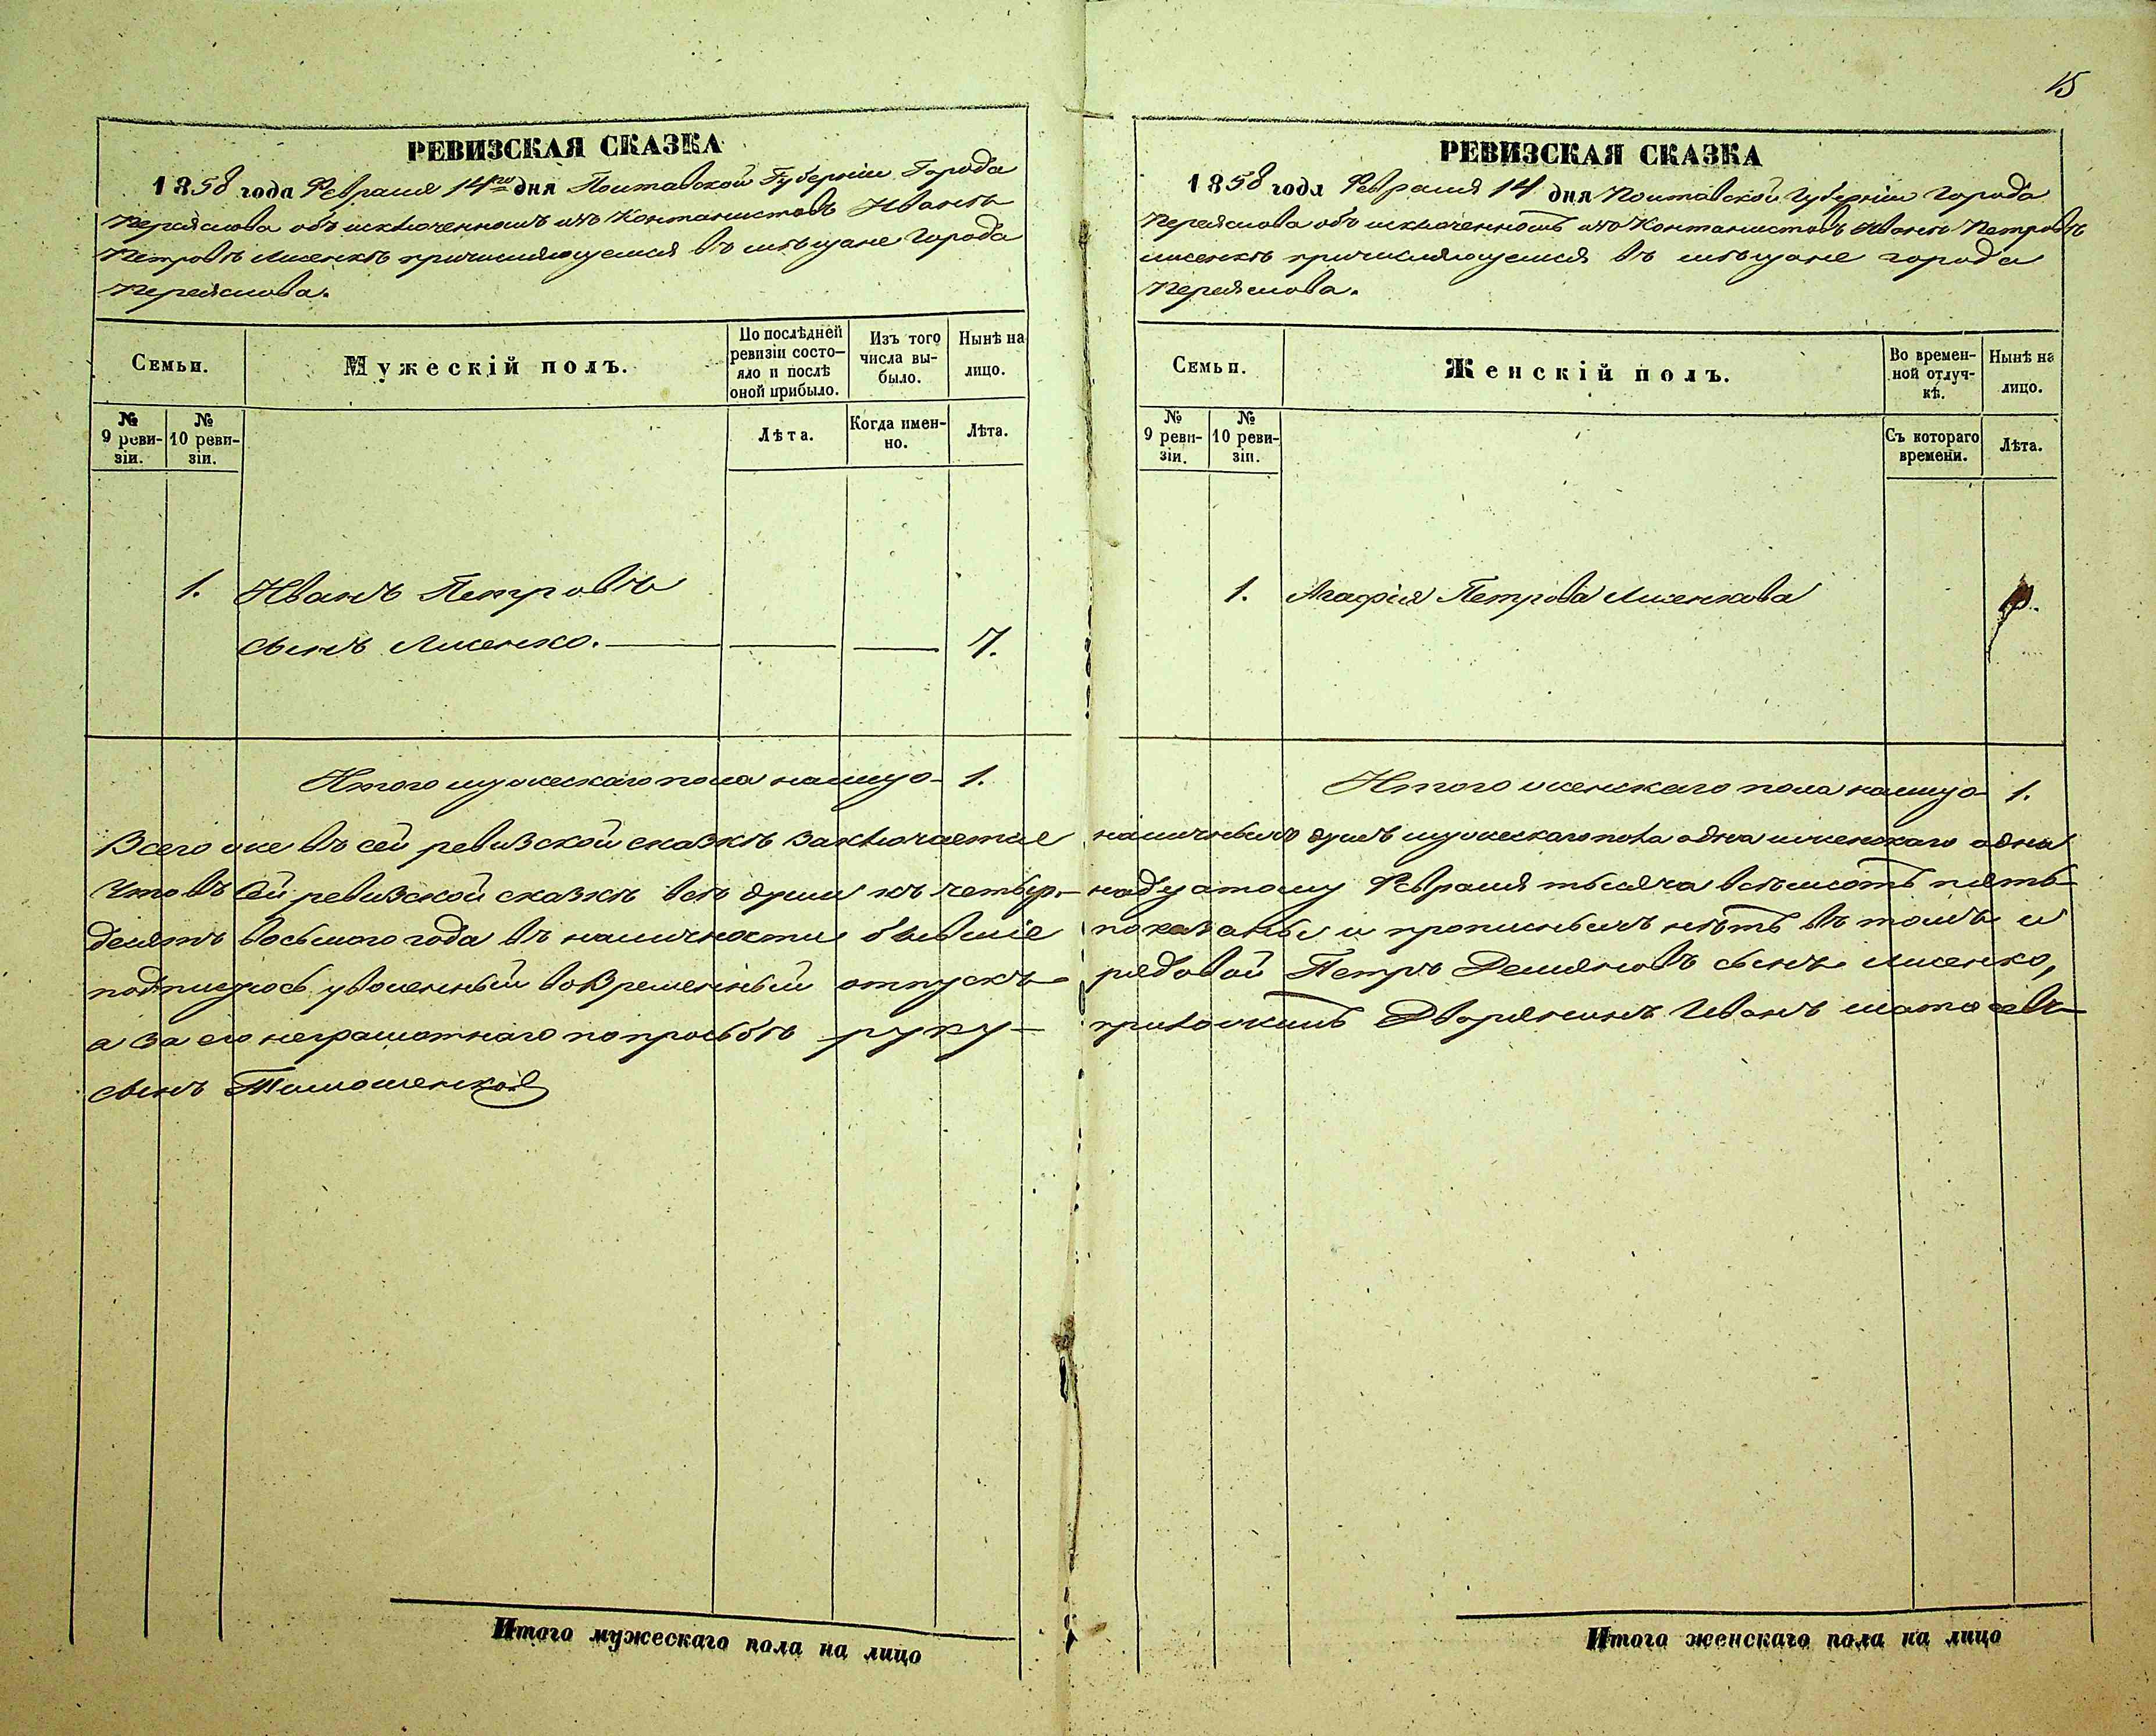 15
РЕВИЗСКАЯ СКАЗКА
1858 года Февраля 14го дня Полтавской Губерніи Города
Переяслова объ исключенномъ изъ Кантанистовъ Иванѣ
Петровѣ Лисенкѣ причисляющемся въ мѣщане Города
Переяслова.
Семьи.
Мужескій полъ.
По послѣдней ревизіи состо-
яло и послѣ оной прибыло.
Изъ того числа вы-
было.
Нынѣ на лицо.
№ 9 реви-
зіи.
№ 10 реви-
зіи.
Лѣта.
Когда имен-
но.
Лѣта.
1. Иванъ Петровъ
сынъ Лисенко. 7.
Итого мужескаго пола налицо 1.
РЕВИЗСКАЯ СКАЗКА
1858 года Февраля 14 дня Полтавской Губерніи города
Переяслова объ исключенномъ изъ Контанистовъ Иванѣ Петровѣ
лисенкѣ причисляющемся въ мѣщане города
Переяслова.
Семьи.
Женскій полъ.
Во времен-
ной отлуч-
кѣ.
Нынѣ на лицо.
№ 9 реви-
зіи.
№ 10 реви-
зіи.
Съ котораго времени.
Лѣта.
1. Агафія Петрова Лисенкова
Итого женскаго пола налицо 1.
Всего же въ сей ревизской сказкѣ заключается наличныхъ душъ мужескаго пола одна и женскаго одна
Что въ сей ревизской сказкѣ всѣ души къ четыр- надцатому Февраля тысяча восемьсотъ пять-
десятъ восьмого года въ наличности бывшіе показаны и прописныхъ нѣтъ въ томъ и
подписуюсь уволенный во временный отпускъ рядовой Петръ Демяновъ сынъ лисенко,
а за его неграмотнаго по просьбѣ руку приложилъ Дворянинъ Иванъ
сынъ Тимошенко
Итого мужескаго пола на лицо
Итого женскаго пола на лицо